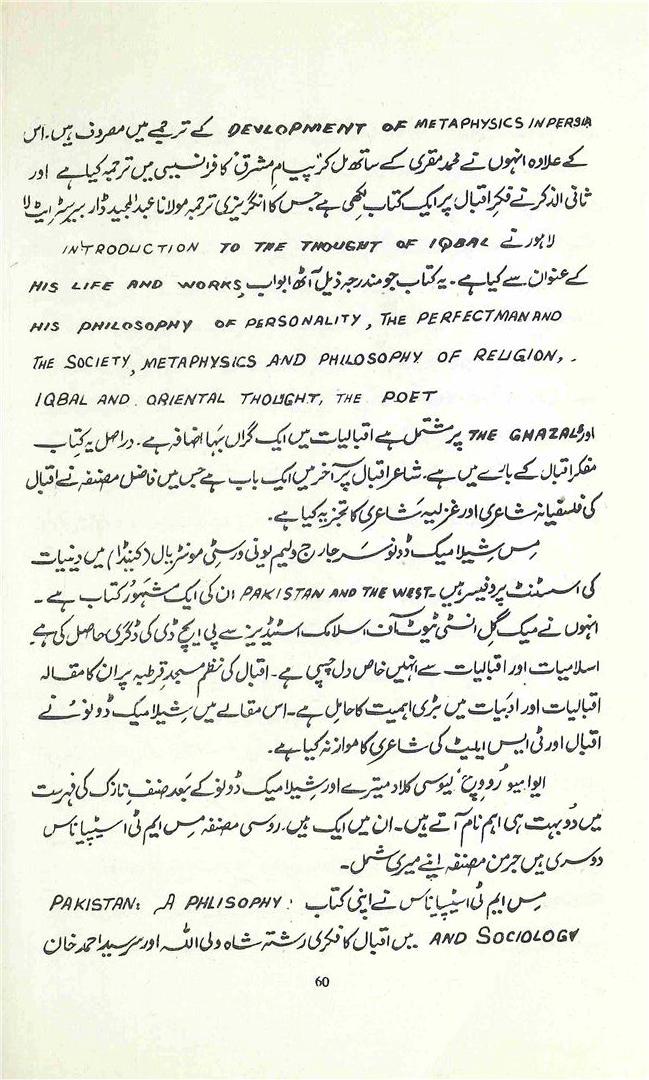 DEVLOPMENT OF METAPHYSICS IN PERSIA کے ترجمے میں مصروف ہیں۔ اس
کے علاوہ انہوں نے محمد مقری کے ساتھ مل کر ’پیام مشرق‘ کا فرانسیسی میں ترجمہ کیا ہے اور
ثانی الذکر نے فکرِ اقبال پر ایک کتاب لکھی ہے جس کا انگریزی ترجمہ مولانا عبدالمجید ڈار بیرسٹر ایٹ لا
لاہور نے INTRODUCTION TO THE THOUGHT OF IQBAL
کے عنوان سے کیا ہے۔ یہ کتاب جو مندرجہ ذیل آٹھ ابواب HIS LIFE AND WORKS,
HIS PHILOSOPHY OF PERSONALITY, THE PERFECT MAN AND
THE SOCIETY, METAPHYSICS AND PHILOSOPHY OF RELIGION,
IQBAL AND ORIENTAL THOUGHT, THE POET
اور THE GHAZALS پر مشتمل ہے اقبالیات میں ایک گراں بہا اضافہ ہے۔ دراصل یہ کتاب
مفکر اقبال کے بارے میں ہے۔ شاعر اقبال پر آخر میں ایک باب ہے جس میں فاضل مصنفہ نے اقبال
کی فلسفیانہ شاعری اور غزلیہ شاعری کا تجزیہ کیا ہے۔
مس شیلا میک ڈونو سر جارج ولیم یونی ورسٹی مونٹریال (کینڈا) میں دینیات
کی اسسٹنٹ پروفیسر ہیں۔ PAKISTAN AND THE WEST ان کی ایک مشہور کتاب ہے۔
انہوں نے میک گل انسٹی ٹیوٹ آف اسلامک اسٹیڈیز سے پی ایچ ڈی کی ڈگری حاصل کی ہے
اسلامیات اور اقبالیات سے انہیں خاص دل چسپی ہے۔ اقبال کی نظم مسجد قرطبہ پر ان کا مقالہ
اقبالیات اور ادبیات میں بڑی اہمیت کا حامل ہے۔ اس مقالے میں شیلا میک ڈونو نے
اقبال اور ٹی ایس ایلیٹ کی شاعری کا موازنہ کیا ہے۔
ایوا میورووچ، لیوسی کلاد میترے اور شیلا میک ڈونو کے بعد صنف نازک کی فہرست
میں دو بہت ہی اہم نام آتے ہیں۔ ان میں ایک ہیں۔ روسی مصنفہ مس ایم ٹی اسٹیپاناس
دوسری ہیں جرمن مصنفہ اپنے میری شمل۔
مس ایم ٹی اسٹیپاناس نے اپنی کتاب PAKISTAN: A PHLISOPHY
AND SOCIOLOGY میں اقبال کا فکری رشتہ شاہ ولی اللہ اور سرسید احمد خان
60